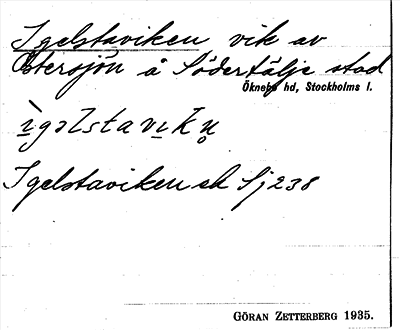 Igelstaviken vik av
Östersjön å Södertälje stad
Öknebo hd, Stockholms l.
ìgəlstavıkņ
Igelstaviken ek Sj 238
GÖRAN ZETTERBERG 1935.